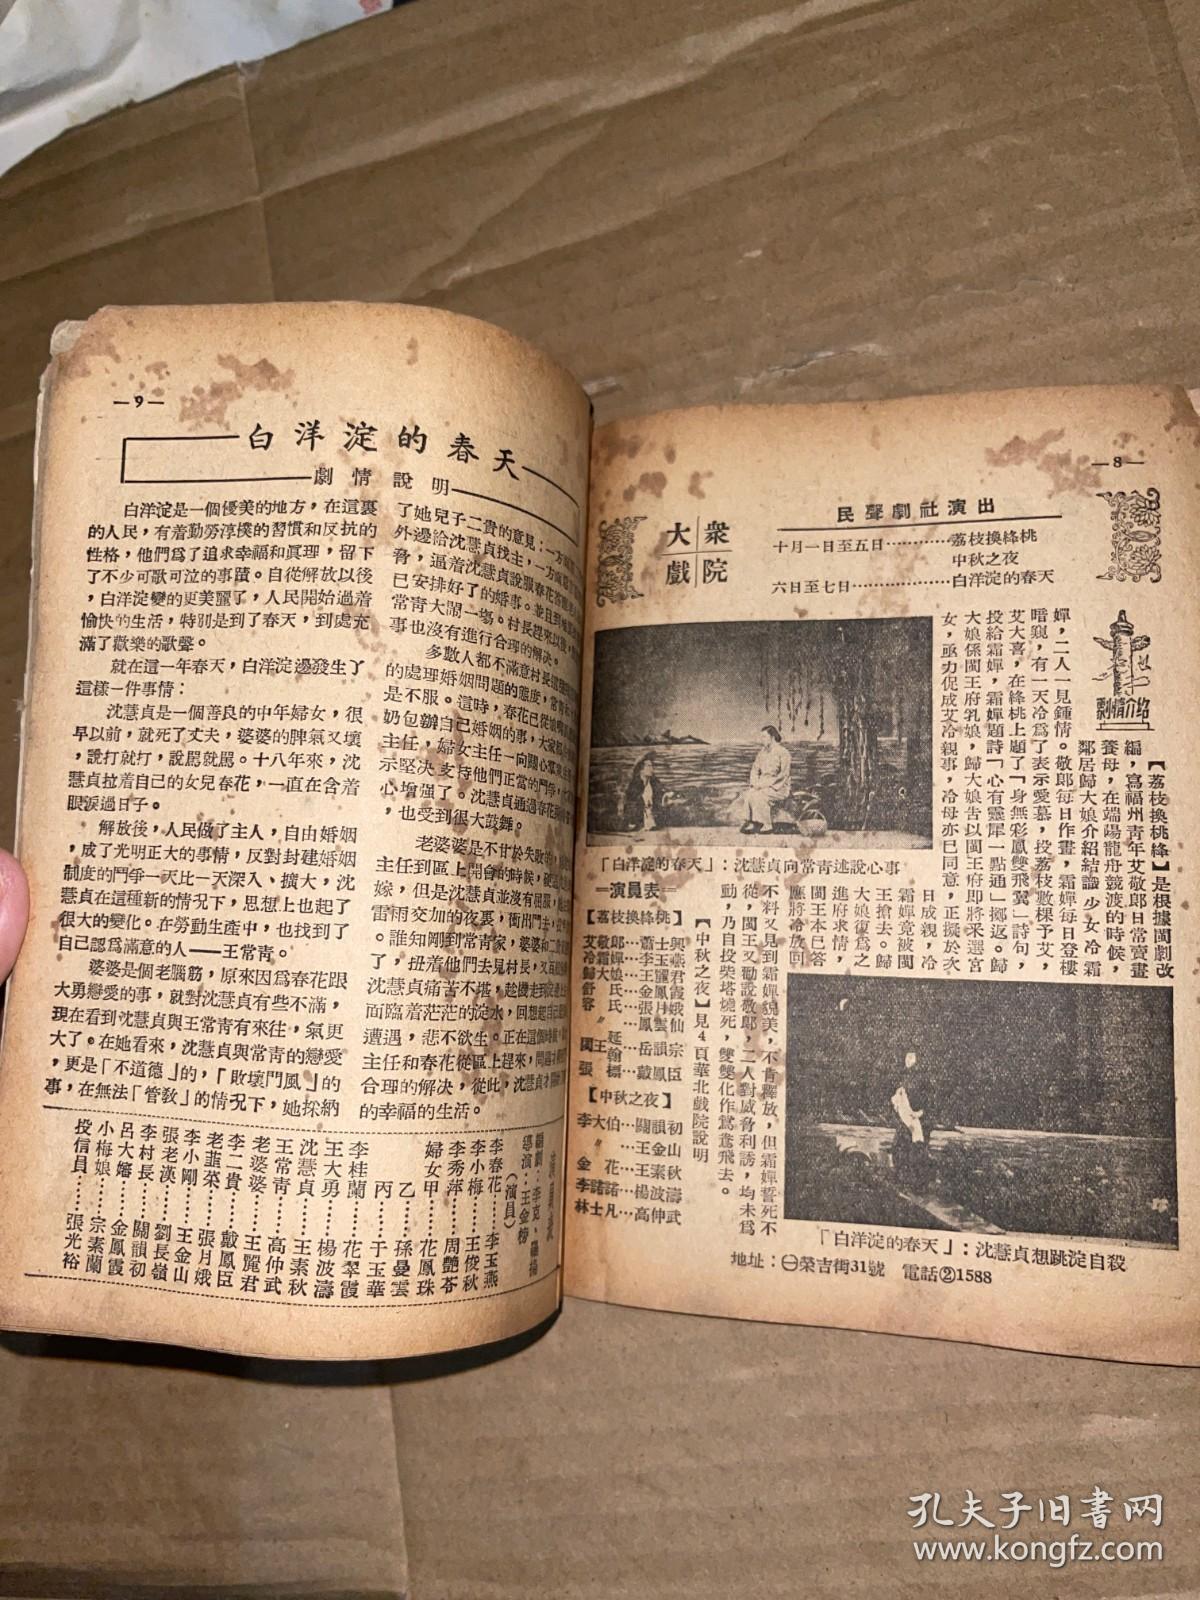 —8—
大衆戲院
民聲劇社演出
十月一日至五日…………荔枝換絳桃
中秋之夜
六日至七日………………白洋淀的春天
劇情介紹
【荔枝換桃絳】是根據閩劇改
編，寫福州青年艾敬郎日常賣畫
養母，在端陽龍舟競渡的時候，
鄰居歸大娘介紹結識少女冷霜
嬋，二人一見鍾情。敬郎每日作畫，霜嬋每日登樓
暗窺，有一天冷爲了表示愛慕，投荔枝數棵予艾，
艾大喜，在絳桃上題了「身無彩鳳雙飛翼」詩句，
投給霜嬋，霜嬋題詩「心有靈犀一點通」擲返。歸
大娘係閩王府乳娘，歸大娘告以閩王府即將采選宮
女，亟力促成艾冷親事，冷母亦已同意，正擬於次
日成親，冷
霜嬋竟被閩
王搶去。歸
大娘復爲之
進府求情，
閩王本已答
應將冷放回
不料又見到霜嬋貌美，不肯釋放，但霜嬋誓死不
從，閩王又勸說敬郎，二人對威脅利誘，均未爲
動，乃自投柴塔燒死，雙雙化作鴛鴦飛去。
【中秋之夜】見4頁華北戲院說明
「白洋淀的春天」：沈慧貞向常青述說心事
＝演員表＝
【荔枝換絳桃】
【中秋之夜】
李大伯…關韻初
〃…王金山
金花…王素秋
李諾諾…楊波濤
林士凡…高仲武
「白洋淀的春天」：沈慧貞想跳淀自殺
地址：㊀榮吉街31號　電話②1588
—9—
白洋淀的春天
劇情說明
白洋淀是一個優美的地方，在這裏
的人民，有着勤勞淳樸的習慣和反抗的
性格，他們爲了追求幸福和眞理，留下
了不少可歌可泣的事蹟。自從解放以後
，白洋淀變的更美麗了，人民開始過着
愉快的生活，特別是到了春天，到處充
滿了歡樂的歌聲。
就在這一年春天，白洋淀邊發生了
這樣一件事情：
沈慧貞是一個善良的中年婦女，很
早以前，就死了丈夫，婆婆的脾氣又壞
，說打就打，說罵就罵。十八年來，沈
慧貞拉着自己的女兒春花，一直在含着
眼淚過日子。
解放後，人民做了主人，自由婚姻
，成了光明正大的事情，反對封建婚姻
制度的鬥爭一天比一天深入、擴大，沈
慧貞在這種新的情況下，思想上也起了
很大的變化。在勞動生產中，也找到了
自己認爲滿意的人——王常靑。
婆婆是個老腦筋，原來因爲春花跟
大勇戀愛的事，就對沈慧貞有些不滿，
現在看到沈慧貞與王常靑有來往，氣更
大了。在她看來，沈慧貞與常靑的戀愛
，更是「不道德」的，「敗壞門風」的
事，在無法「管敎」的情况下，她採納
了她兒子二貴的意見：一方
外邊給沈慧貞找主，一方
脅，逼着沈慧貞說服春花
已安排好了的婚事。並且到
常靑大鬧一塲。村長趕來以後，
事也沒有進行合理的解決。
多數人都不滿意村長
的處理婚姻問題的態度，常靑
是不服。這時，春花已從
奶包辦自己婚姻的事，大家
主任，婦女主任一向關心羣衆
示堅決支持他們正當的鬥爭，
心增強了。沈慧貞通過春花
，也受到很大鼓舞。
老婆婆是不甘於失敗的，
主任到區上開會的時候，
嫁，但是沈慧貞並沒有屈服，
雷雨交加的夜裏，衝出門去，
。誰知剛到常靑家，婆婆和二
了，扭着他們去見村長，又
沈慧貞痛苦不堪，趁機走到
面臨着茫茫的淀水，回想起自己
遭遇，悲不欲生。正在這個時候
主任和春花從區上趕來，問題才
合理的解決，從此，沈慧貞才
的幸福的生活。
演員表
編劇：李克、
導演：王金榜
（演員）
李春花……李玉燕
李小梅……王俊秋
李秀萍……周艷苓
婦女甲……花鳳珠
乙……孫曼雲
丙……于玉華
李桂蘭……花翠霞
王大勇……楊波濤
沈慧貞……王素秋
王常靑……高仲武
老婆婆……王麗君
李二貴……戴鳳臣
老韮菜……張月娥
李小剛……王金山
張老漢……劉長嶺
李村長……關韻初
呂大嬸……金鳳霞
小梅娘……宗素蘭
投信員……張光裕
孔夫子旧书网
www.kongfz.com